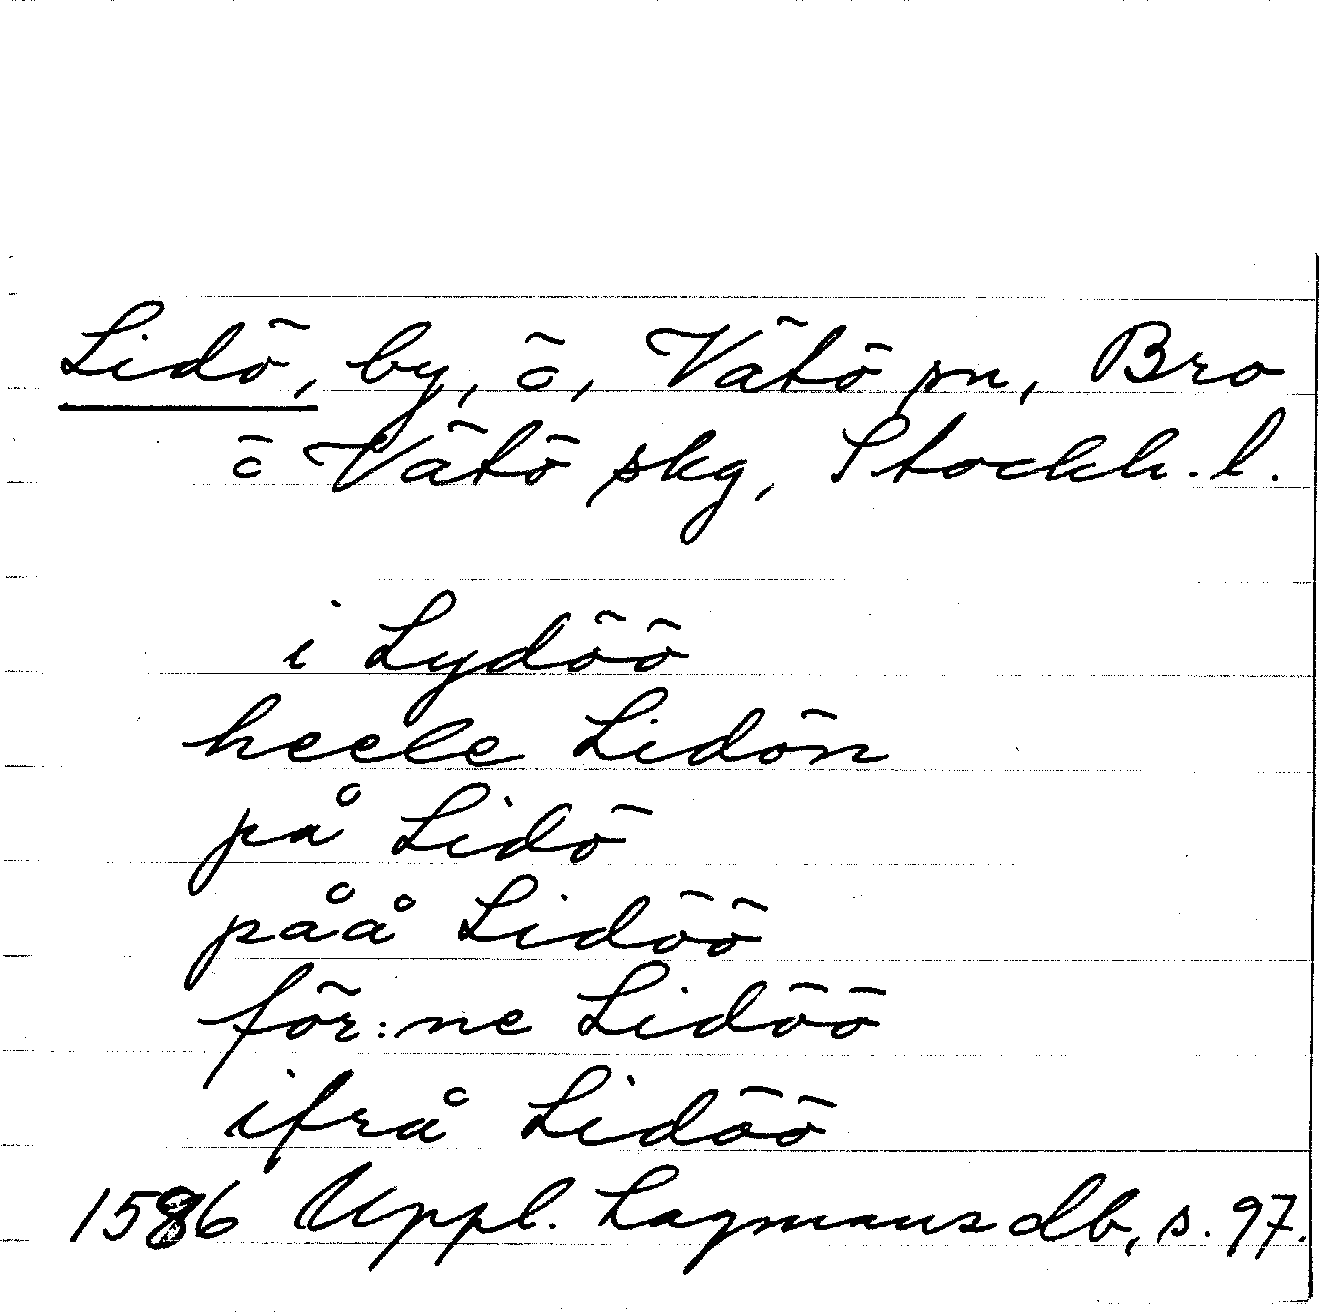 Lidö, by, ö, Vätö sn, Bro
o Vätö skg, Stockh. l.
i Lydöö
heele Lidön
på Lidö
påå Lidöö
för:ne Lidöö
ifrå Lidöö
1586 Uppl. Lagmans db, s. 97.